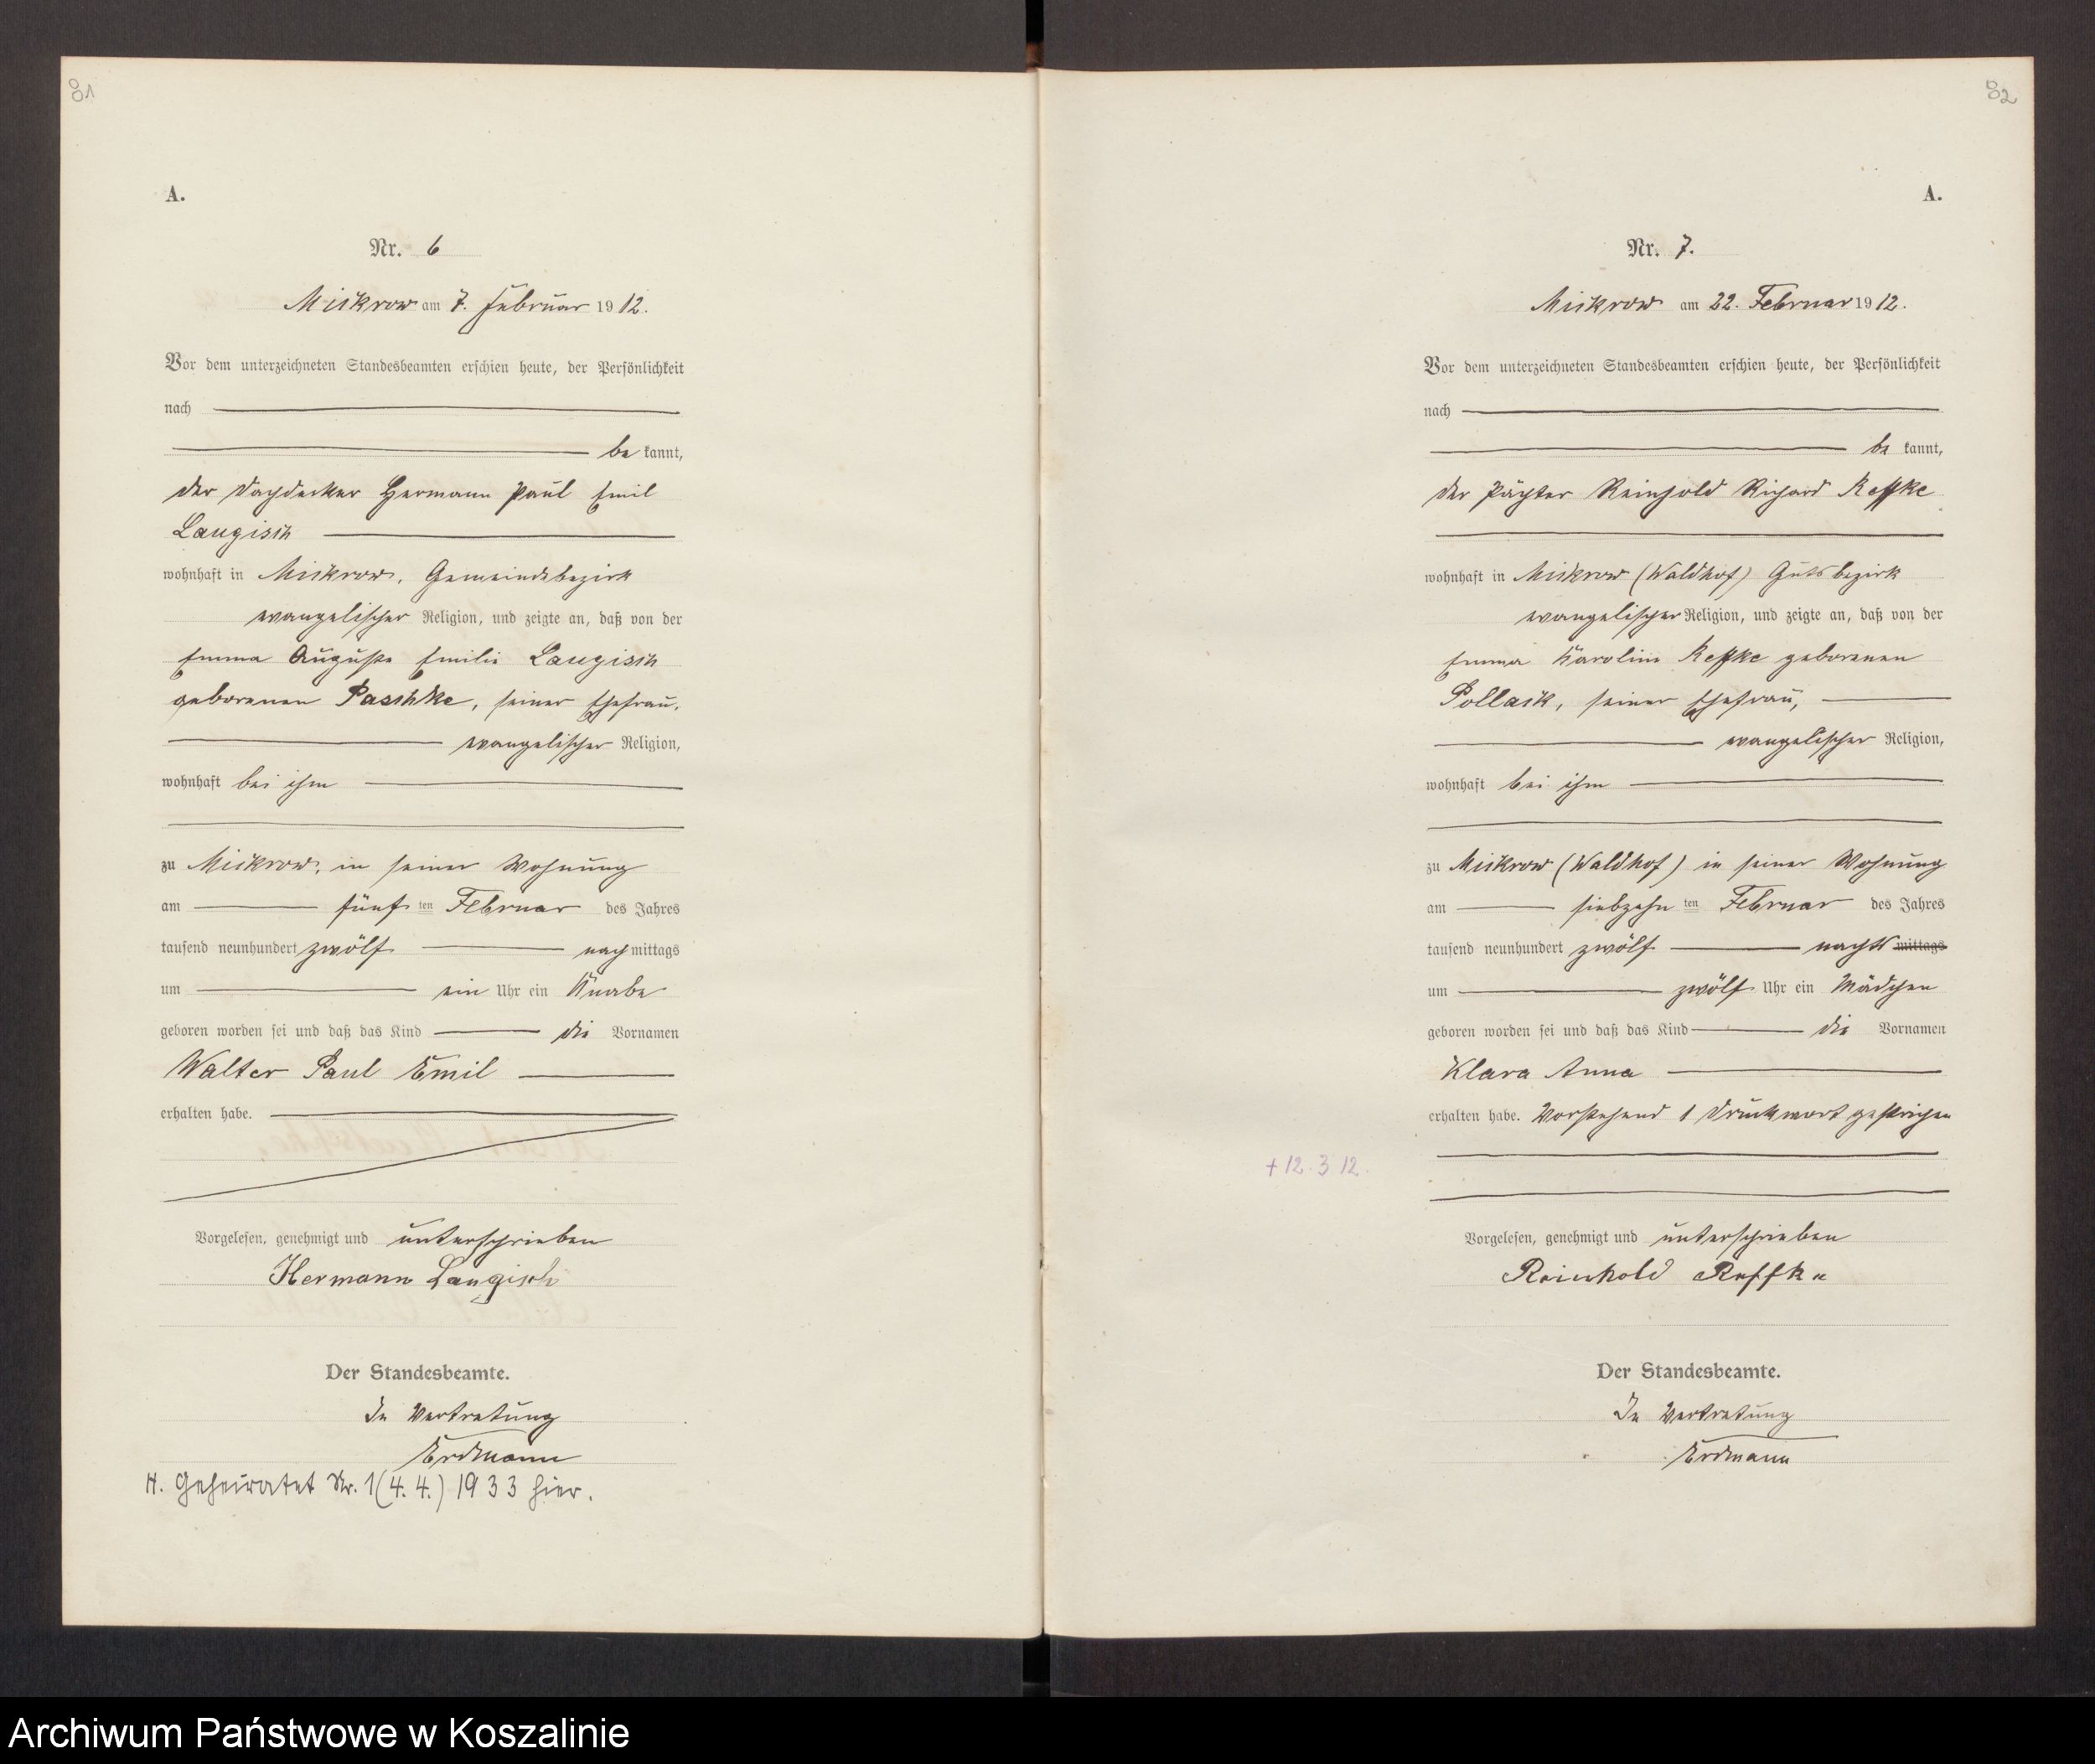 81
A.
Nr. 6
Mickrow am 7. Februar 1912.
Vor dem unterzeichneten Standesbeamten erschien heute, der Persönlichkeit
nach
be kannt,
der Dachdecker Hermann Paul Emil
Laugisch
wohnhaft in Mickrow, Gemeindebezirk
evangelischer Religion, und zeigte an, daß von der
Emma Auguste Emilie Laugisch
geborenen Paschke, seiner Ehefrau,
evangelischer Religion,
wohnhaft bei ihm
zu Mickrow, in seiner Wohnung
am fünften Februar des Jahres
tausend neunhundert zwölf nachmittags
um ein Uhr ein Knabe
geboren worden sei und daß das Kind die Vornamen
Walter Paul Emil
erhalten habe.
Vorgelesen, genehmigt und unterschrieben
Hermann Laugisch
Der Standesbeamte.
In Vertretung
Erdmann
H. Geheiratet Nr. 1 (4.4.) 1933 hier.
82
A.
Nr. 7.
Mickrow am 22. Februar 1912.
Vor dem unterzeichneten Standesbeamten erschien heute, der Persönlichkeit
nach
be kannt,
der Pächter Reinhold Richard Reffke
wohnhaft in Mickrow (Waldhof) Gutsbezirk
evangelischer Religion, und zeigte an, daß von der
Emma Karoline Reffke geborenen
Pollack, seiner Ehefrau,
evangelischer Religion,
wohnhaft bei ihm
zu Mickrow (Waldhof) in seiner Wohnung
am siebzehnten Februar des Jahres
tausend neunhundert zwölf nachts mittags
um zwölf Uhr ein Mädchen
geboren worden sei und daß das Kind die Vornamen
Klara Anna
erhalten habe. Vorstehend 1 Druckwort gestrichen
+ 12. 3 12.
Vorgelesen, genehmigt und unterschrieben
Reinhold Reffke
Der Standesbeamte.
In Vertretung
Erdmann
Archiwum Państwowe w Koszalinie